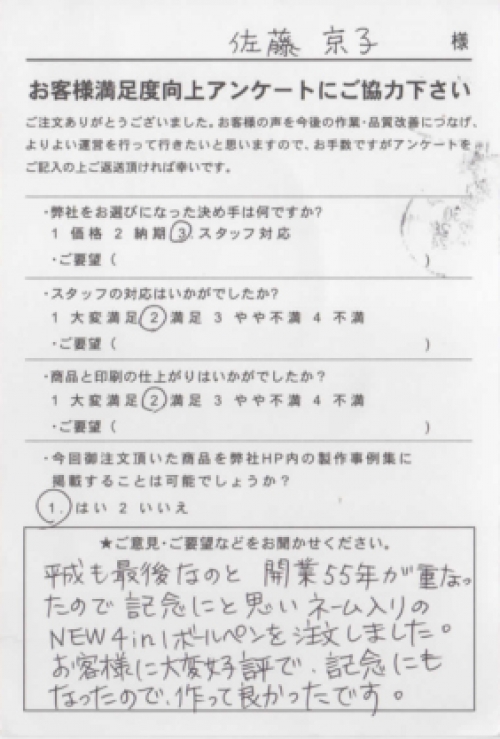 佐藤 京子 様
お客様満足度向上アンケートにご協力下さい
ご注文ありがとうございました。お客様の声を今後の作業・品質改善につなげ、
よりよい運営を行って行きたいと思いますので、お手数ですがアンケートを
ご記入の上ご返送頂ければ幸いです。
・弊社をお選びになった決め手は何ですか?
1 価格 2 納期 3. スタッフ対応
・ご要望( )
・スタッフの対応はいかがでしたか?
1 大変満足 2 満足 3 やや不満 4 不満
・ご要望( )
・商品と印刷の仕上がりはいかがでしたか?
1 大変満足 2 満足 3 やや不満 4 不満
・ご要望( )
・今回御注文頂いた商品を弊社HP内の製作事例集に
掲載することは可能でしょうか?
1. はい 2 いいえ
★ご意見・ご要望などをお聞かせください。
平成も最後なのと 開業55年が重なっ
たので 記念にと思い ネーム入りの
NEW4in1ボールペンを注文しました。
お客様に大変好評で、記念にも
なったので、作って良かったです。